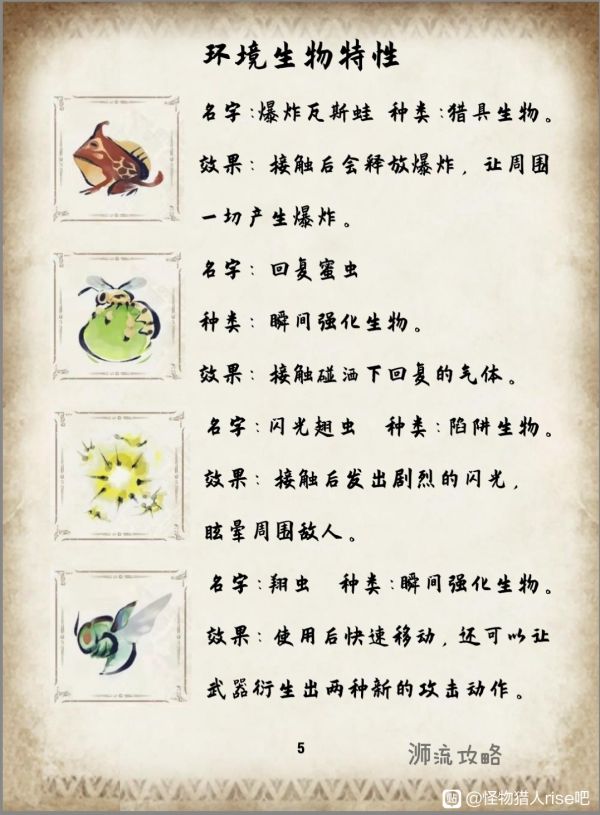 环境生物特性
名字:爆炸瓦斯蛙 种类:猎具生物。
效果: 接触后会释放爆炸, 让周围
一切产生爆炸。
名字: 回复蜜虫
种类: 瞬间强化生物。
效果: 接触碰洒下回复的气体。
名字:闪光翅虫 种类:陷阱生物。
效果: 接触后发出剧烈的闪光,
眩晕周围敌人。
名字:翔虫 种类:瞬间强化生物。
效果: 使用后快速移动,还可以让
武器衍生出两种新的攻击动作。
5
浉流攻略
贴 @怪物猎人rise吧